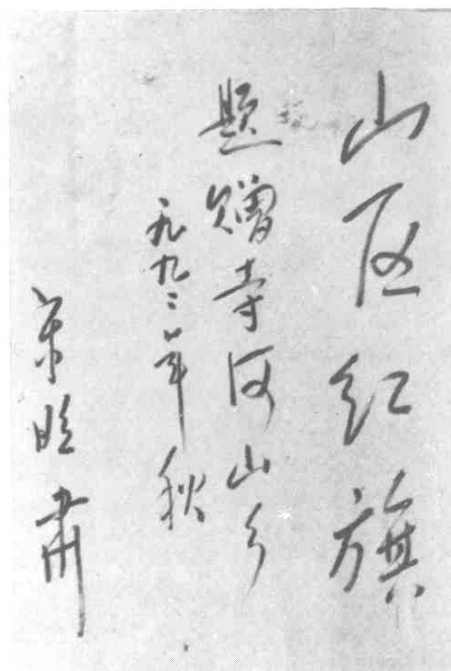 山区红旗
题赠寺河山乡
一九九二年秋